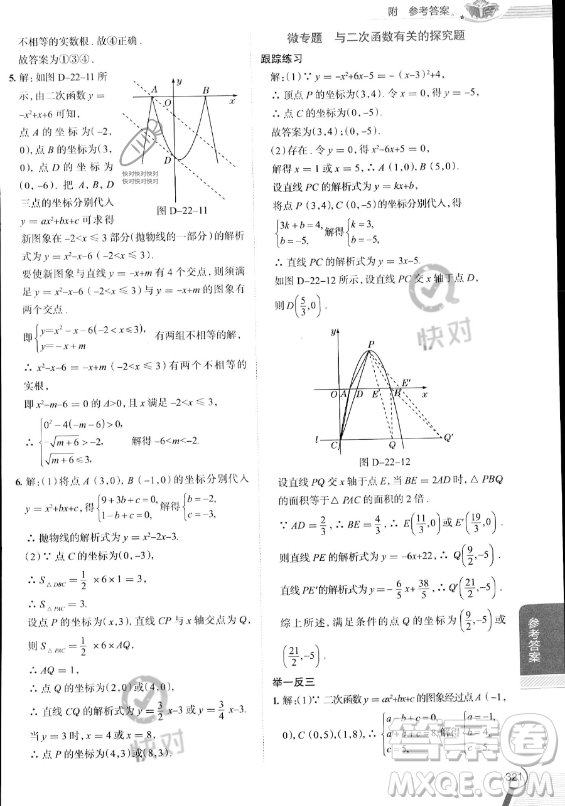 附 参考答案
不相等的实数根．故④正确．
故答案为①③④．
5. 解：如图 D-22-11 所
示，由二次函数 y=
-x²+x+6 可知，
点 A 的坐标为(-2,
0)，点 B 的坐标为(3,
0)，点 D 的坐标为
(0,-6)．把 A,B,D
三点的坐标分别代入
y=ax²+bx+c 可求得
新图象在 -2<x≤3 部分(抛物线的一部分)的解析
式为 y=x²-x-6(-2<x≤3)．
要使新图象与直线 y=-x+m 有 4 个交点，则须满足
以下条件：直线 y=-x+m 与该部分的图象有
两个交点．
即{y=x²-x-6(-2<x≤3), y=-x+m 有两组不相等的解，
∴ x²-x-6=-x+m 有两个不相等的
实根，
即 x²-m-6=0 有两个不相等的实根，
∴ {0²-4(-m-6)>0, -√m+6>-2, √m+6≤3, 解得 -6<m<-2.
6. 解：(1)将点 A(3,0)，B(-1,0)的坐标分别代入
y=x²+bx+c，得{9+3b+c=0, 1-b+c=0, 解得{b=-2, c=-3.
∴ 抛物线的解析式为 y=x²-2x-3.
(2)∵ 点 C 的坐标为(0,-3)，
∴ S△DBC=1/2×6×1=3.
∴ S△PAC=3.
设点 P 的坐标为(x,3)．直线 CP 与 x 轴交点为 Q，
则 S△PAC=1/2×6×AQ.
∴ AQ=1.
∴ 点 Q 的坐标为(2,0)或(4,0)．
∴ 直线 CQ 的解析式为 y=3/2x-3 或 y=3/4x-3.
∴ 点 P 的坐标为(4,3)或(8,3)．
A
O
B
x
D
y
图 D-22-11
微专题 与二次函数有关的探究题
跟踪练习
解：(1)∵ y=-x²+6x-5=-(x-3)²+4,
∴ 顶点 P 的坐标为(3,4)．令 x=0，得 y=-5,
∴ 点 C 的坐标为(0,-5)．
故答案为(3,4)．
(2)存在．令 y=0，则 -x²+6x-5=0,
解得 x=1 或 x=5. ∴ A(1,0)，B(5,0)．
设直线 PC 的解析式为 y=kx+b,
将点 P(3,4)，C(0,-5)的坐标分别代入，得
{3k+b=4, b=-5, 解得{k=3, b=-5.
∴ 直线 PC 的解析式为 y=3x-5.
如图 D-22-12 所示，设直线 PC 交 x 轴于点 D，
则 D(5/3,0).
y
P
O
A
D
E'
B
E'
x
l
C
Q
Q'
图 D-22-12
设直线 PQ 交 x 轴于点 E，当 BE=2AD 时，△PBQ
的面积等于△PAC 的面积的 2 倍．
∵ AD=2/3，∴ BE=4/3. ∴ E(11/3,0)或 E'(19/3,0).
则直线 PE 的解析式为 y=-6x+22，∴ Q(9/2,-5).
直线 PE'的解析式为 y=-6/5x+38/5，∴ Q'(21/2,-5).
综上所述，满足条件的点 Q 的坐标为(9/2,-5)或
(21/2,-5).
举一反三
1. 解：(1)∵ 二次函数 y=ax²+bx+c 的图象经过点 A(-1,
0)，C(0,5)，(1,8)，∴ {a-b+c=0, a+b+c=8, c=5. 解得{a=-1, b=4, c=5.
参考答案
321
快对
快对快对快对
快对快对快对
快对
快对
答案圈
MXQE.COM